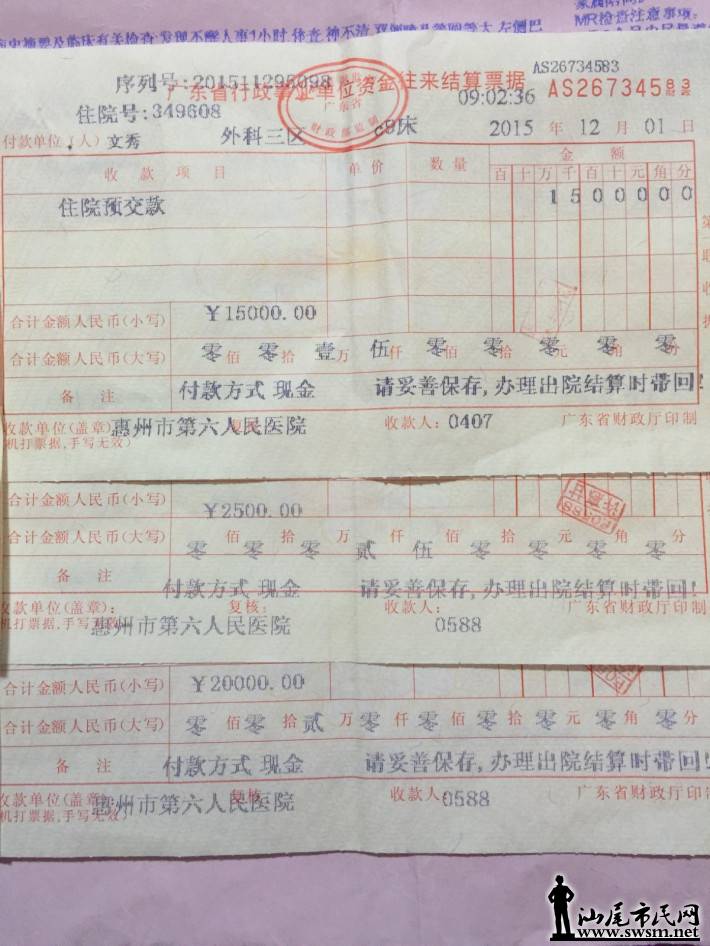 MR检查注意事项:
史摘要及临床有关检查:发现不醒人事1小时.体查.神不清.双侧瞳孔等圆等大.左侧巴
AS26734583
序列号:201511298098
广东省行政事业单位资金往来结算票据
09:02:36
AS26734583
住院号:349608
付款单位(人) 文秀
外科三区
c9床
2015 年 12 月 01 日
广东省
财政部监制
收款项目 单价 数量 金额
百 十 万 千 百 十 元 角 分
住院预交款
1 5 0 0 0 0 0
合计金额人民币(小写) ¥15000.00
合计金额人民币(大写) 零 佰 零 拾 壹 万 伍 仟 零 佰 零 拾 零 元 零 角 零 分
备注 付款方式 现金 请妥善保存,办理出院结算时带回!
收款单位(盖章) 惠州市第六人民医院 复核: 收款人: 0407 广东省财政厅印制
机打票据,手写无效)
合计金额人民币(小写) ¥2500.00
合计金额人民币(大写) 零 佰 零 拾 零 万 贰 仟 伍 佰 零 拾 零 元 零 角 零 分
备注 付款方式 现金 请妥善保存,办理出院结算时带回!
收款单位(盖章): 惠州市第六人民医院 复核: 收款人: 0588 广东省财政厅印制
机打票据,手写无效)
合计金额人民币(小写) ¥20000.00
合计金额人民币(大写) 零 佰 零 拾 贰 万 零 仟 零 佰 零 拾 零 元 零 角 零 分
备注 付款方式 现金 请妥善保存,办理出院结算时带回!
收款单位(盖章): 惠州市第六人民医院 复核: 收款人: 0588 广东省财政厅印制
机打票据,手写无效)
汕尾市民网
www.swsm.net